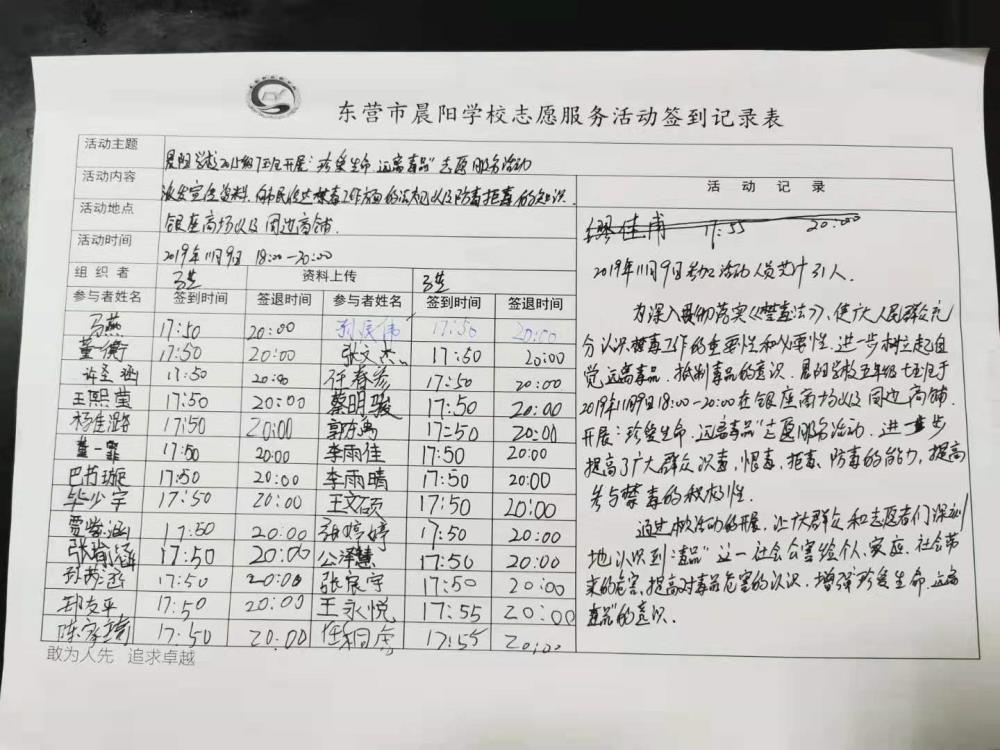 东营市晨阳学校志愿服务活动签到记录表
活动主题 晨阳学校2015级7班开展:珍爱生命,远离毒品"志愿服务活动
活动内容 派发宣传资料,向市民传达禁毒工作方面的法规以及防毒拒毒的知识.
活动地点 银座商场以及周边商铺.
活动时间 2019年11月9日 18:00-20:00
组织者 马燕 资料上传 马燕
参与者姓名 签到时间 签退时间 参与者姓名 签到时间 签退时间
马燕 17:50 20:00 17:50 20:00
董衡 17:50 20:00 张文杰 17:50 20:00
许圣涵 17:50 20:00 任春彦 17:50 20:00
王熙莹 17:50 20:00 蔡明骏 17:50 20:00
杨佳璐 17:50 20:00 郭方禹 17:50 20:00
董一霏 17:50 20:00 李雨佳 17:50 20:00
巴书璇 17:50 20:00 李雨晴 17:50 20:00
毕少宇 17:50 20:00 王文硕 17:50 20:00
贾紫涵 17:50 20:00 张婷婷 17:50 20:00
张瑜涵 17:50 20:00 公泽慧 17:50 20:00
孙芮涵 17:50 20:00 张宸宇 17:50 20:00
郑友平 17:50 20:00 王永悦 17:55 20:00
17:50 20:00 任桐彦 17:55 20:00
敢为人先 追求卓越
活动记录
缪佳甫 17:55 20:00
2019年11月9日参加活动人员共计31人.
为深入贯彻落实《禁毒法》,使广大人民群众充
分认识禁毒工作的重要性和必要性,进一步树立起自
觉远离毒品,抵制毒品的意识.晨阳学校五年级七班于
2019年11月9日18:00-20:00在银座商场以及周边商铺
开展:珍爱生命,远离毒品"志愿服务活动,进一步
提高了广大群众识毒,恨毒,拒毒、防毒的能力,提高
参与禁毒的积极性.
通过本次活动的开展,让广大群众和志愿者们深刻
地认识到:毒品"这一社会公害给个人、家庭、社会带
来的危害,提高对毒品危害的认识,增强珍爱生命,远离
毒品"的意识.